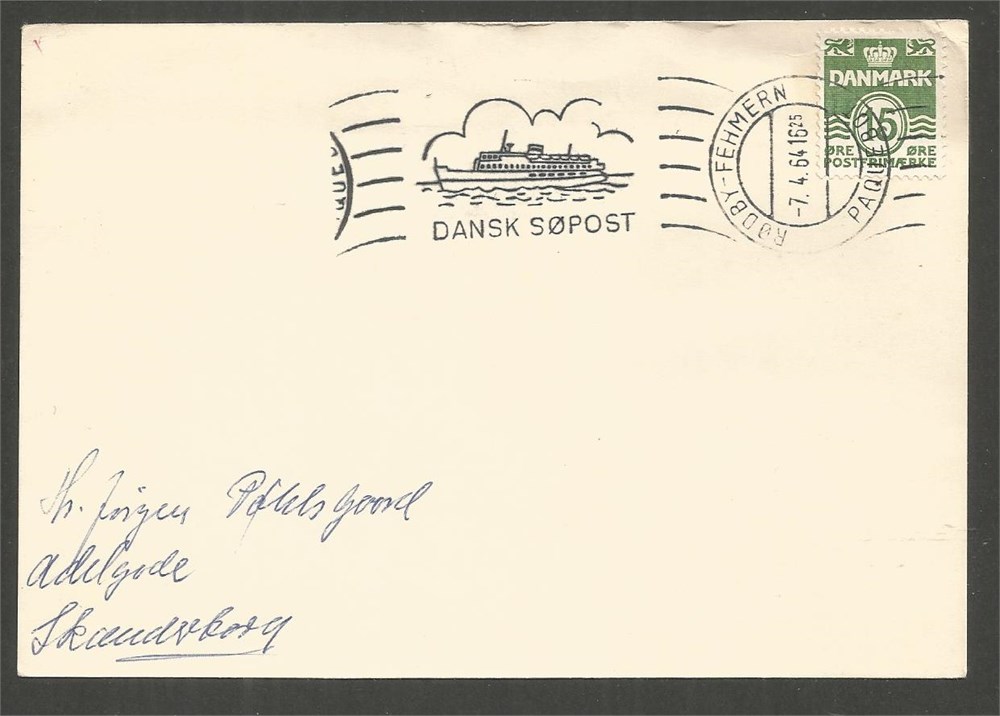 DANMARK
15
ØRE ØRE
POSTFRIMÆRKE
RØDBY-FEHMERN
-7. 4. 64 16 25
PAQUEBO
QUEB
DANSK SØPOST
Hr. Jörgen
Adelgade
Skanderborg